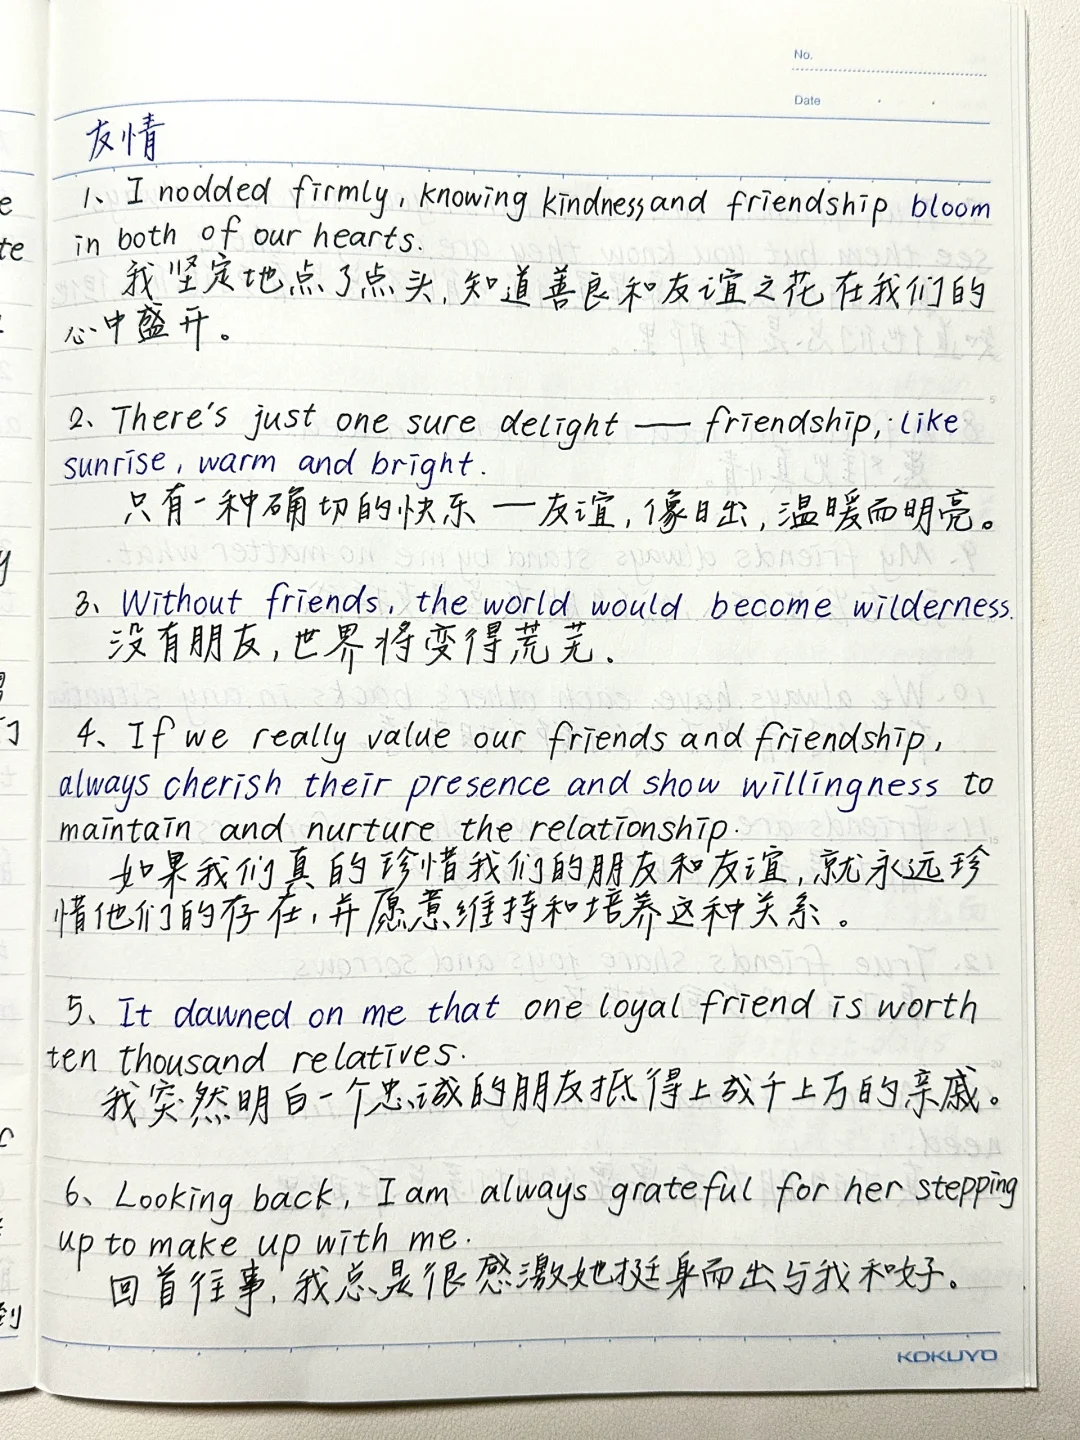 No.
Date
友情
1、I nodded firmly, knowing kindness and friendship bloom
in both of our hearts.
我坚定地点了点头,知道善良和友谊之花在我们的
心中盛开。
2、There's just one sure delight —— friendship, like
sunrise, warm and bright.
只有一种确切的快乐 — 友谊,像日出,温暖而明亮。
3、Without friends, the world would become wilderness.
没有朋友,世界将变得荒芜.
4、If we really value our friends and friendship,
always cherish their presence and show willingness to
maintain and nurture the relationship.
如果我们真的珍惜我们的朋友和友谊,就永远珍
惜他们的存在,并愿意维持和培养这种关系。
5、It dawned on me that one loyal friend is worth
ten thousand relatives.
我突然明白一个忠诚的朋友抵得上成千上万的亲戚。
6、Looking back, I am always grateful for her stepping
up to make up with me.
回首往事,我总是很感激她挺身而出与我和好。
KOKUYO